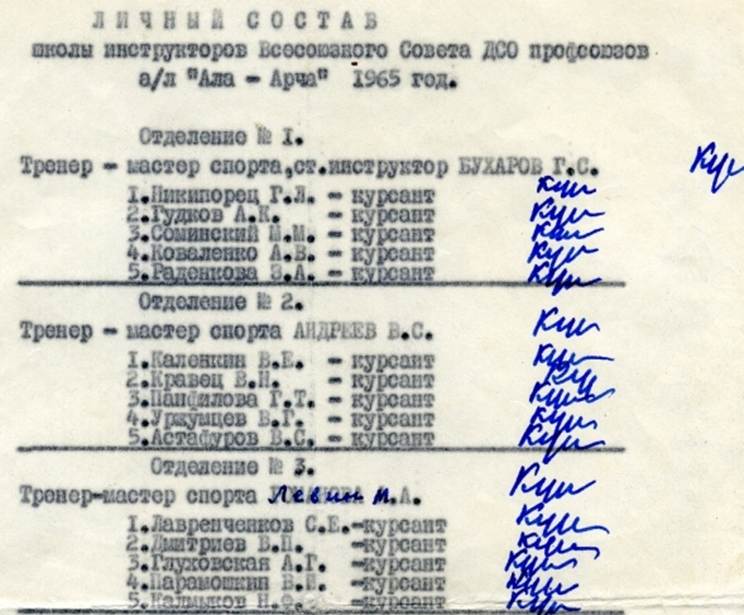 ЛИЧНЫЙ СОСТАВ
школы инструкторов Всесоюзного Совета ДСО профсоюзов
а/л "Ала - Арча" 1965 год.
Отделение № 1.
Тренер - мастер спорта,ст.инструктор БУХАРОВ Г.С.
1.Никипорец Г.Л. - курсант
2.Гудков А.К. - курсант
3.Соминский М.М. - курсант
4.Коваленко А.В. - курсант
5.Раденкова З.А. - курсант
Отделение № 2.
Тренер - мастер спорта АНДРЕЕВ В.С.
1.Каленкин В.Е. - курсант
2.Кравец В.Н. - курсант
3.Панфилова Г.Т. - курсант
4.Уржумцев В.Г. - курсант
5.Астафуров В.С. - курсант
Отделение № 3.
Тренер-мастер спорта Левин М.А.
1.Лавренченков С.Е.-курсант
2.Дмитриев В.П. -курсант
3.Глуховская А.Г. -курсант
4.Парамошкин -курсант
5.Калмыков -курсант